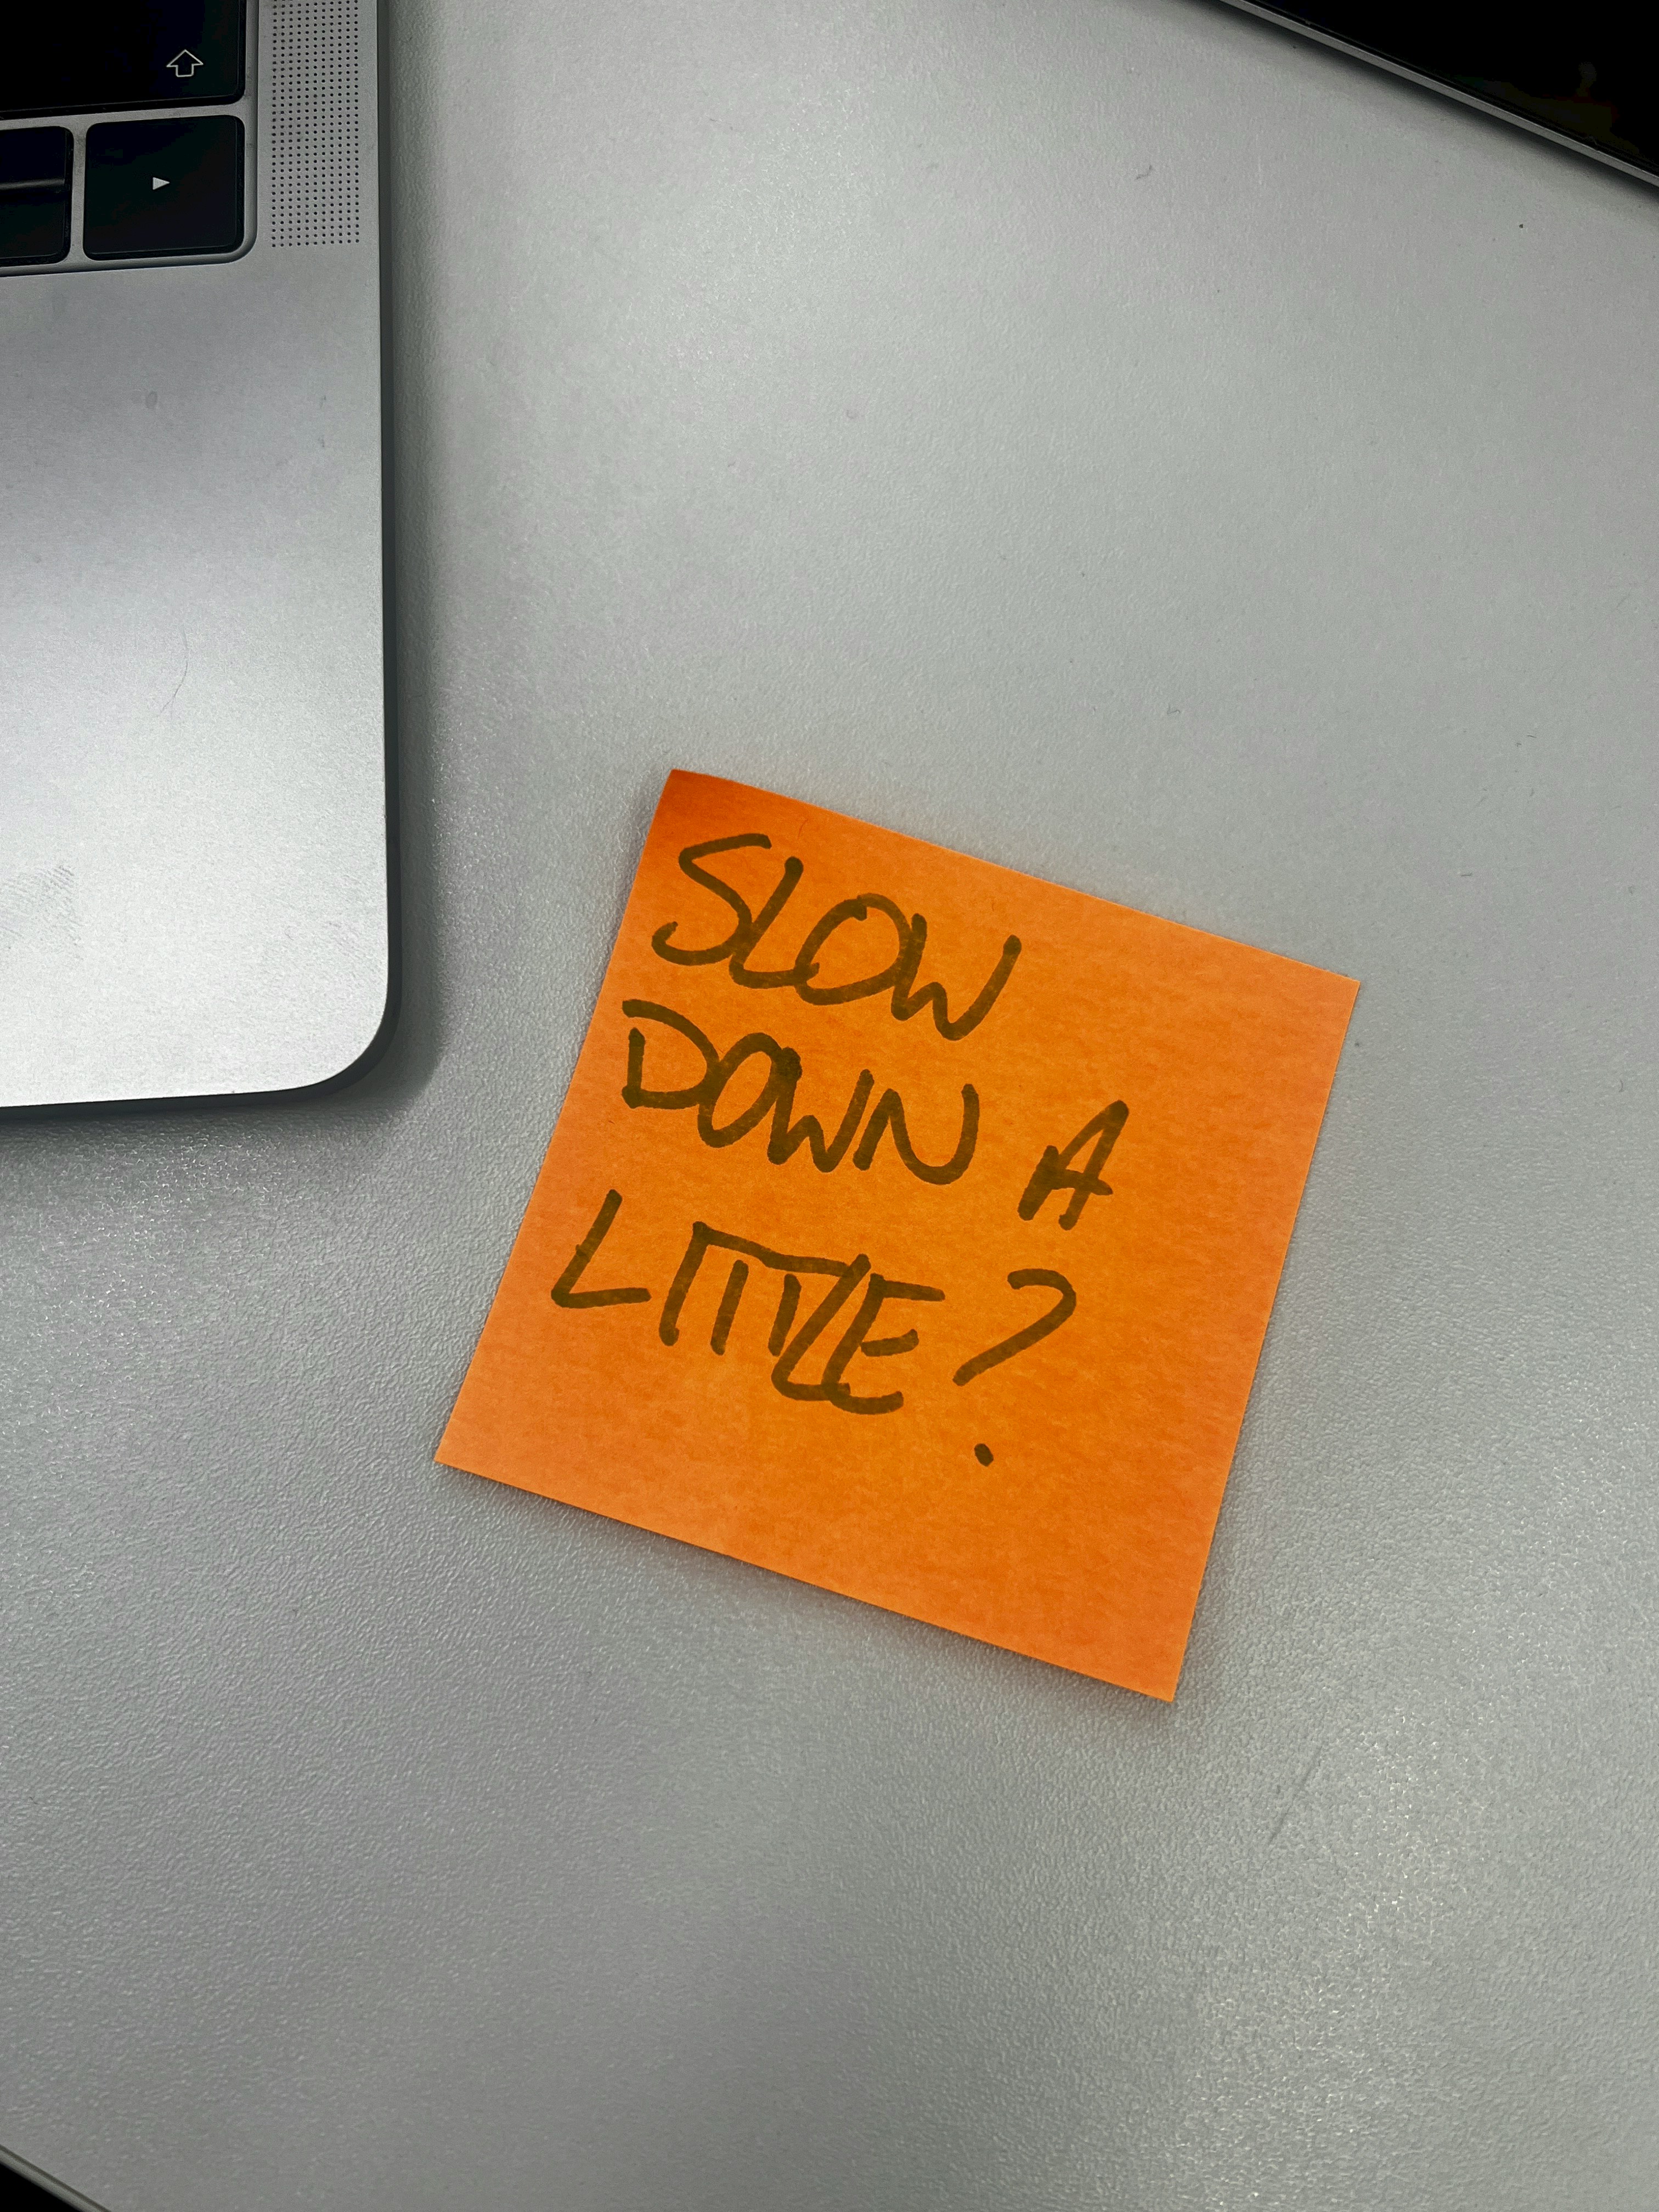 SLOW
DOWN A
LITTLE?